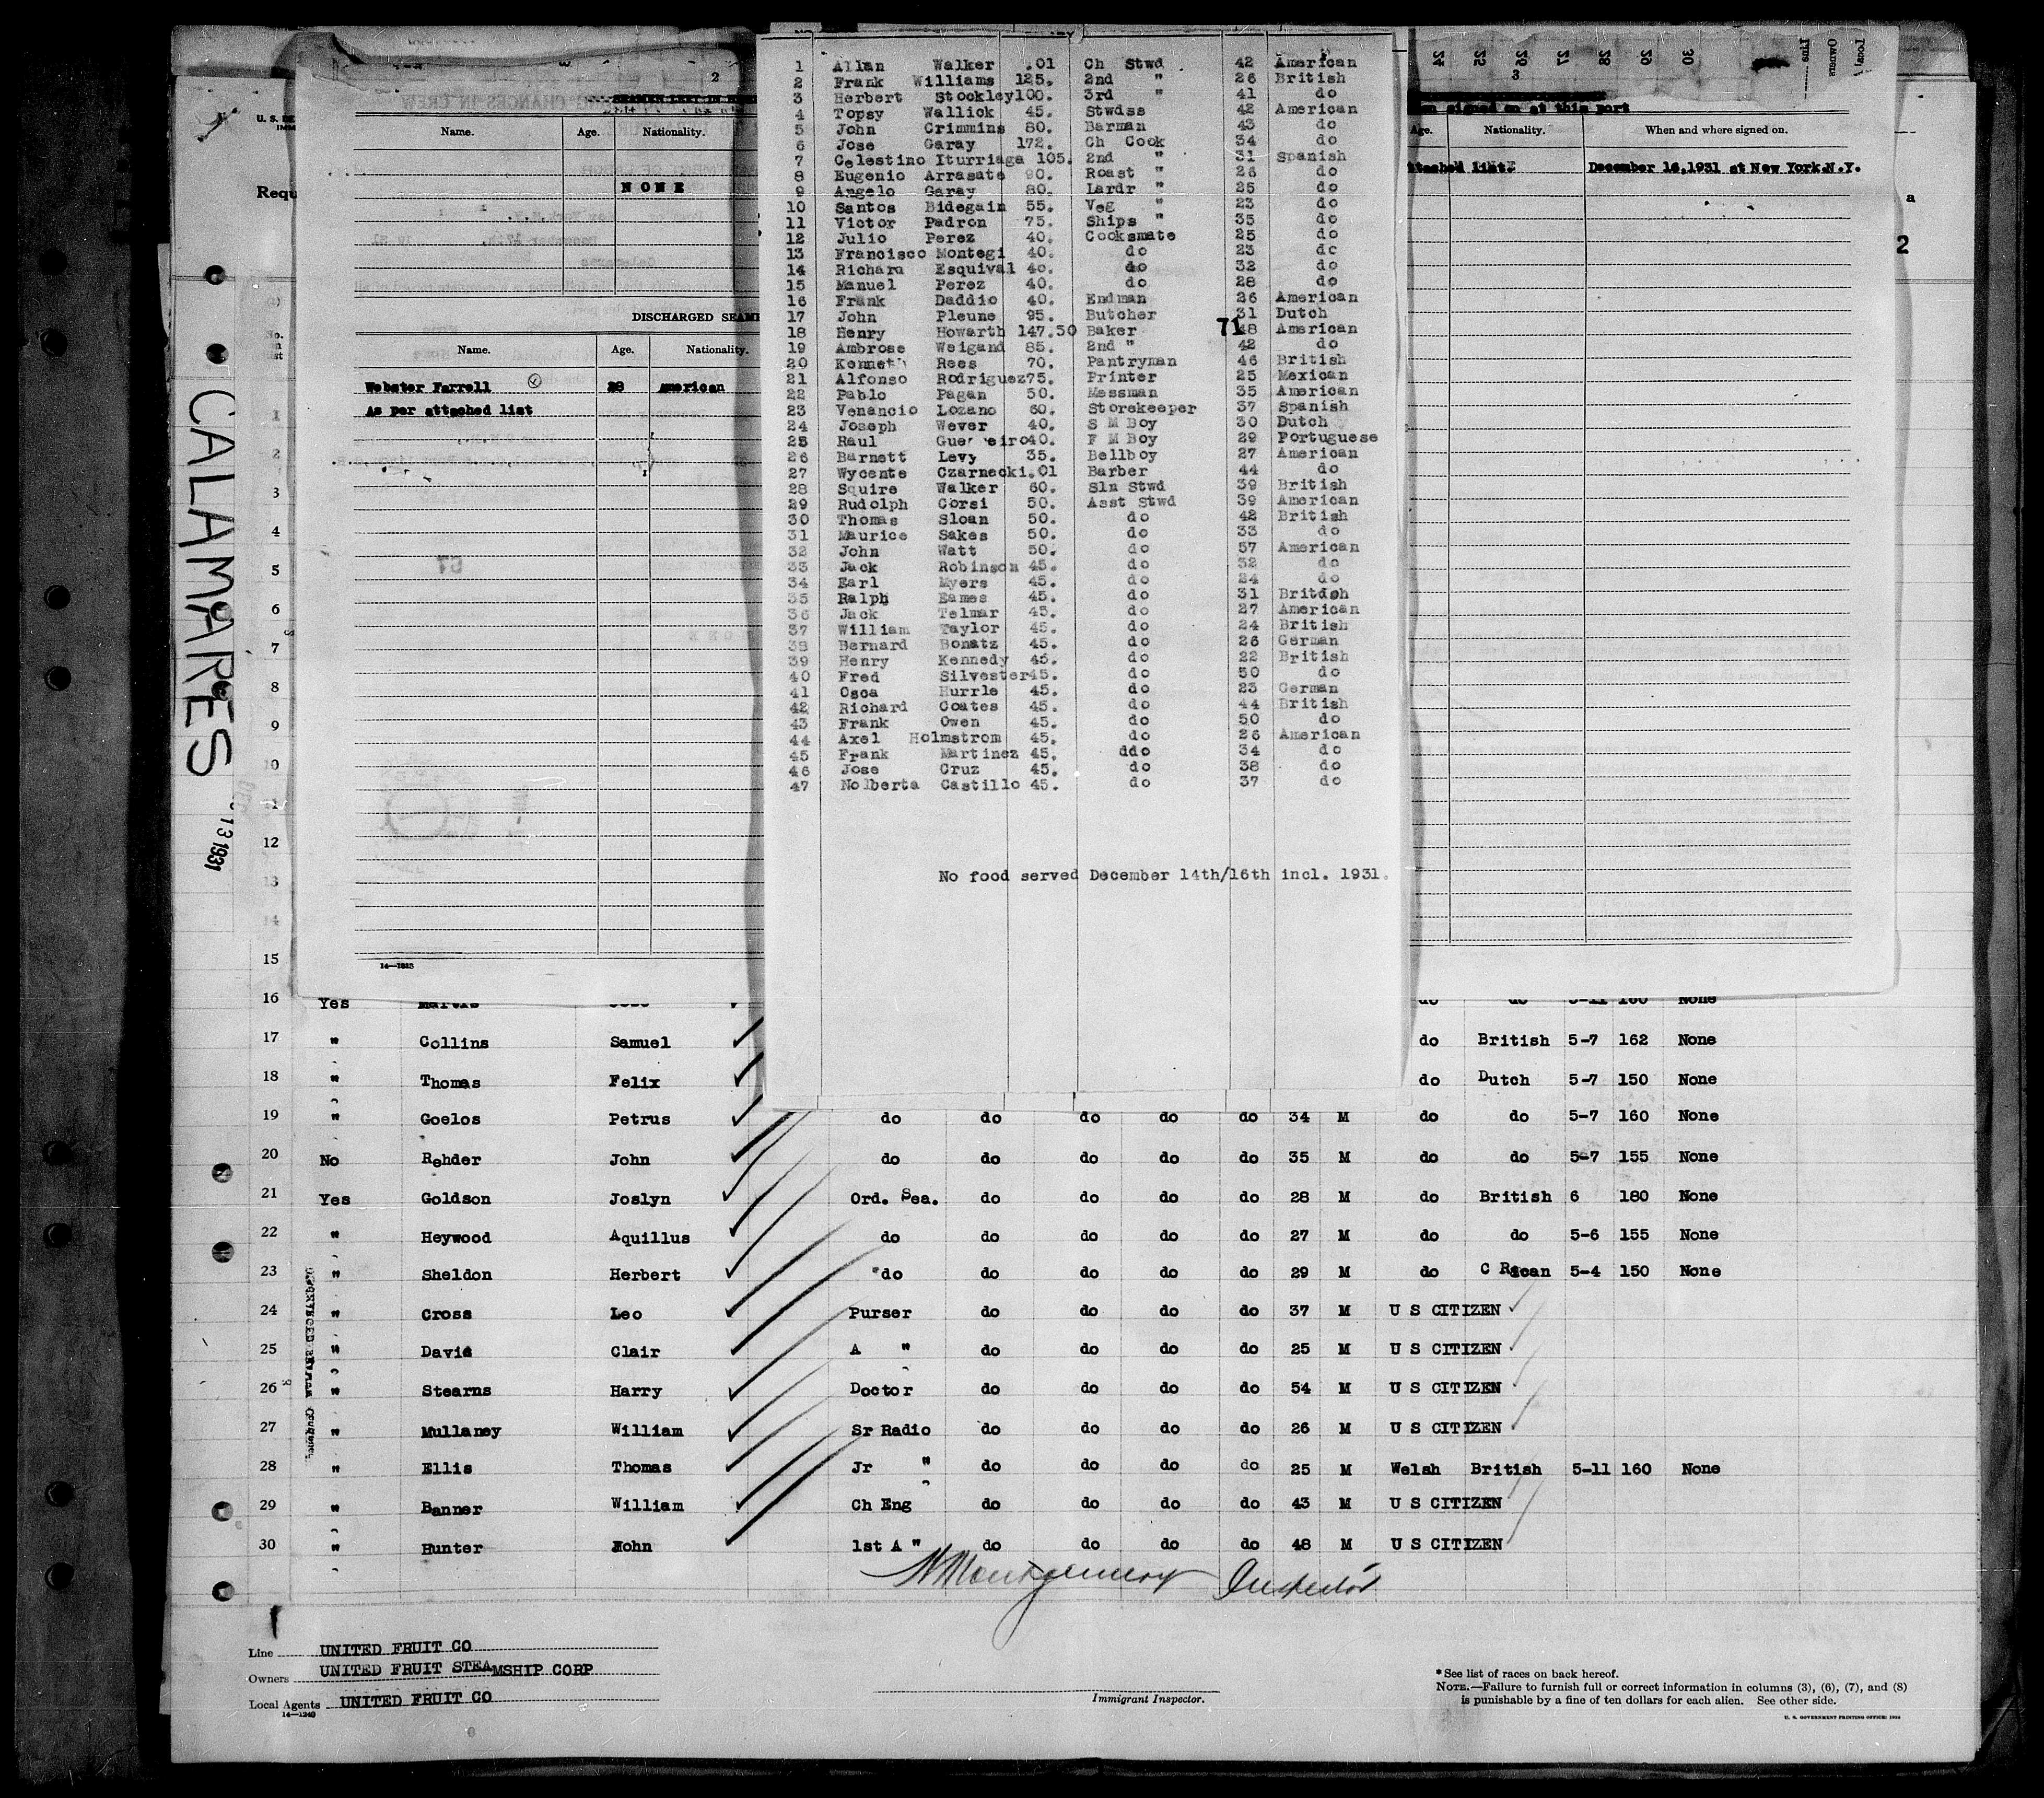 CALAMARES
13 1931
U. S. DE
IMM
Requ
2
Name. Age. Nationality.
NONE
DISCHARGED SEAM
Name. Age. Nationality.
Webster Farrell 28 American
As per attached list
14—1313
1 Allan Walker .01 Ch Stwd 42 American
2 Frank Williams 125. 2nd " 26 British
3 Herbert Stockley100. 3rd " 41 do
4 Topsy Wallick 45. Stwdss 42 American
5 John Crimmins 80. Barman 43 do
6 Jose Garay 172. Ch Cook 34 do
7 Celestino Iturriaga 105. 2nd " 31 Spanish
8 Eugenio Arrasate 90. Roast " 26 do
9 Angelo Garay 80. Lardr " 25 do
10 Santos Bidegain 55. Veg " 23 do
11 Victor Padron 75. Ships " 35 do
12 Julio Perez 40. Cooksmate 25 do
13 Francisco Montegi 40. do 23 do
14 Richard Esquival 40. do 32 do
15 Manuel Perez 40. do 28 do
16 Frank Daddio 40. Endman 26 American
17 John Pleune 95. Butcher 31 Dutch
18 Henry Howarth 147.50 Baker 48 American
71
19 Ambrose Weigand 85. 2nd " 42 do
20 Kenneth Rees 70. Pantryman 46 British
21 Alfonso Rodriguez75. Printer 25 Mexican
22 Pablo Pagan 50. Messman 35 American
23 Venancio Lozano 60. Storekeeper 37 Spanish
24 Joseph Wever 40. S M Boy 30 Dutch
25 Raul Guerreiro40. F M Boy 29 Portuguese
26 Barnett Levy 35. Bellboy 27 American
27 Wycente Czarnecki.01 Barber 44 do
28 Squire Walker 60. Sln Stwd 39 British
29 Rudolph Corsi 50. Asst Stwd 39 American
30 Thomas Sloan 50. do 42 British
31 Maurice Sakes 50. do 33 do
32 John Watt 50. do 57 American
33 Jack Robinson 45. do 32 do
34 Earl Myers 45. do 24 do
35 Ralph Eames 45. do 31 British
36 Jack Telmar 45. do 27 American
37 William Taylor 45. do 24 British
38 Bernard Bonatz 45. do 26 German
39 Henry Kennedy 45. do 22 British
40 Fred Silvester45. do 50 do
41 Osca Hurrle 45. do 23 German
42 Richard Coates 45. do 44 British
43 Frank Owen 45. do 50 do
44 Axel Holmstrom 45. do 26 American
45 Frank Martinez 45. ddo 34 do
46 Jose Cruz 45. do 38 do
47 Nolberta Castillo 45. do 37 do
No food served December 14th/16th incl. 1931.
24 25 26 27 28 29 30
Line
Owners
Local
3
en signed on at this port
Age. Nationality. When and where signed on.
ttached list. December 16,1931 at New York.N.Y.
a
2
1
2
3
4
5
6
7
8
9
10
11
12
13
14
15
16 Yes do do 5-11 160 None
17 " Collins Samuel do British 5-7 162 None
18 " Thomas Felix do Dutch 5-7 150 None
19 " Goelos Petrus do do do do do 34 M do do 5-7 160 None
20 No Rehder John do do do do do 35 M do do 5-7 155 None
21 Yes Goldson Joslyn Ord. Sea. do do do do 28 M do British 6 180 None
22 " Heywood Aquillus do do do do do 27 M do do 5-6 155 None
23 " Sheldon Herbert do do do do do 29 M do C Rican 5-4 150 None
24 " Cross Leo Purser do do do do 37 M U S CITIZEN
25 " David Clair A " do do do do 25 M U S CITIZEN
26 " Stearns Harry Doctor do do do do 54 M U S CITIZEN
27 " Mullaney William Sr Radio do do do do 26 M U S CITIZEN
28 " Ellis Thomas Jr " do do do do 25 M Welsh British 5-11 160 None
29 " Banner William Ch Eng do do do do 43 M U S CITIZEN
30 " Hunter John 1st A " do do do do 48 M U S CITIZEN
Montgomery Inspector
Line UNITED FRUIT CO
Owners UNITED FRUIT STEAMSHIP CORP
Local Agents UNITED FRUIT CO
14—1240
Immigrant Inspector.
*See list of races on back hereof.
NOTE.—Failure to furnish full or correct information in columns (3), (6), (7), and (8)
is punishable by a fine of ten dollars for each alien. See other side.
U. S. GOVERNMENT PRINTING OFFICE: 1930